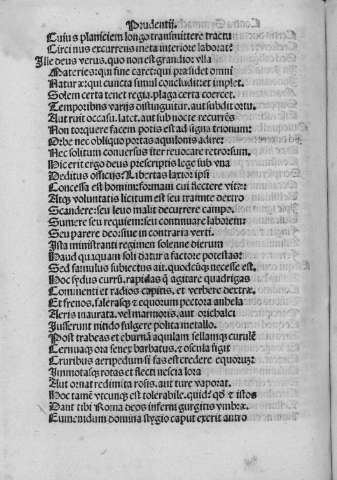 Prudentij.
Cuius planiciem longo transmittere tractu
Circinus excurrens meta interiore laborat?
Ille deus verus. quo non est grandior vlla
Materies: qui fine caret: qui præsidet omni
Naturæ: qui cuncta simul concludit et implet.
Solem certa tenet regio. plaga certa coercet.
Temporibus varijs distinguitur. aut subdit ortu.
Aut ruit occasu. latet. aut sub nocte recurrēs
Non torquere facem potis est ad signa trionum:
Orbe nec obliquo portas aquilonis adire:
Nec solitum conuersus iter reuocare retrorsum.
Hic erit ergo deus prescriptis lege sub vna
Deditus officijs? Libertas laxior ipsi
Concessa est homini: formam cui flectere vitæ:
Atq voluntatis licitum est seu tramite dextro
Scandere: seu leuo malit decurrere campo.
Sumere seu requiem: seu continuare laborem
Seu parere deo: siue in contraria verti.
Ista ministranti regimen solenne dierum
Haud quaquam soli datur a factore potestas:
Sed famulus subiectus ait. quodcūq necesse est.
Hoc sydus currū. rapidas q̄ agitare quadrigas
Commenti et radios capitis. et verbere dextræ.
Et frenos. falerasq et equorum pectora anhela
Aeris inaurata. vel marmoris. aut orichalci
Iusserunt nitido fulgere polita metallo.
Post trabeas et eburnā aquilam sellamq curulē
Cernuaq ora senex barbatus. et oscula figit
Cruribus aeripedum si fas est credere equorum:
Immotasq rotas et flecti nescia lora
Aut ornat redimita rosis. aut ture vaporat.
Hoc tamē vtcunq est tolerabile. quid? qd et istos
Dant tibi Roma deos inferni gurgitis vmbræ.
Eumenidum domina stygio caput exerit antro